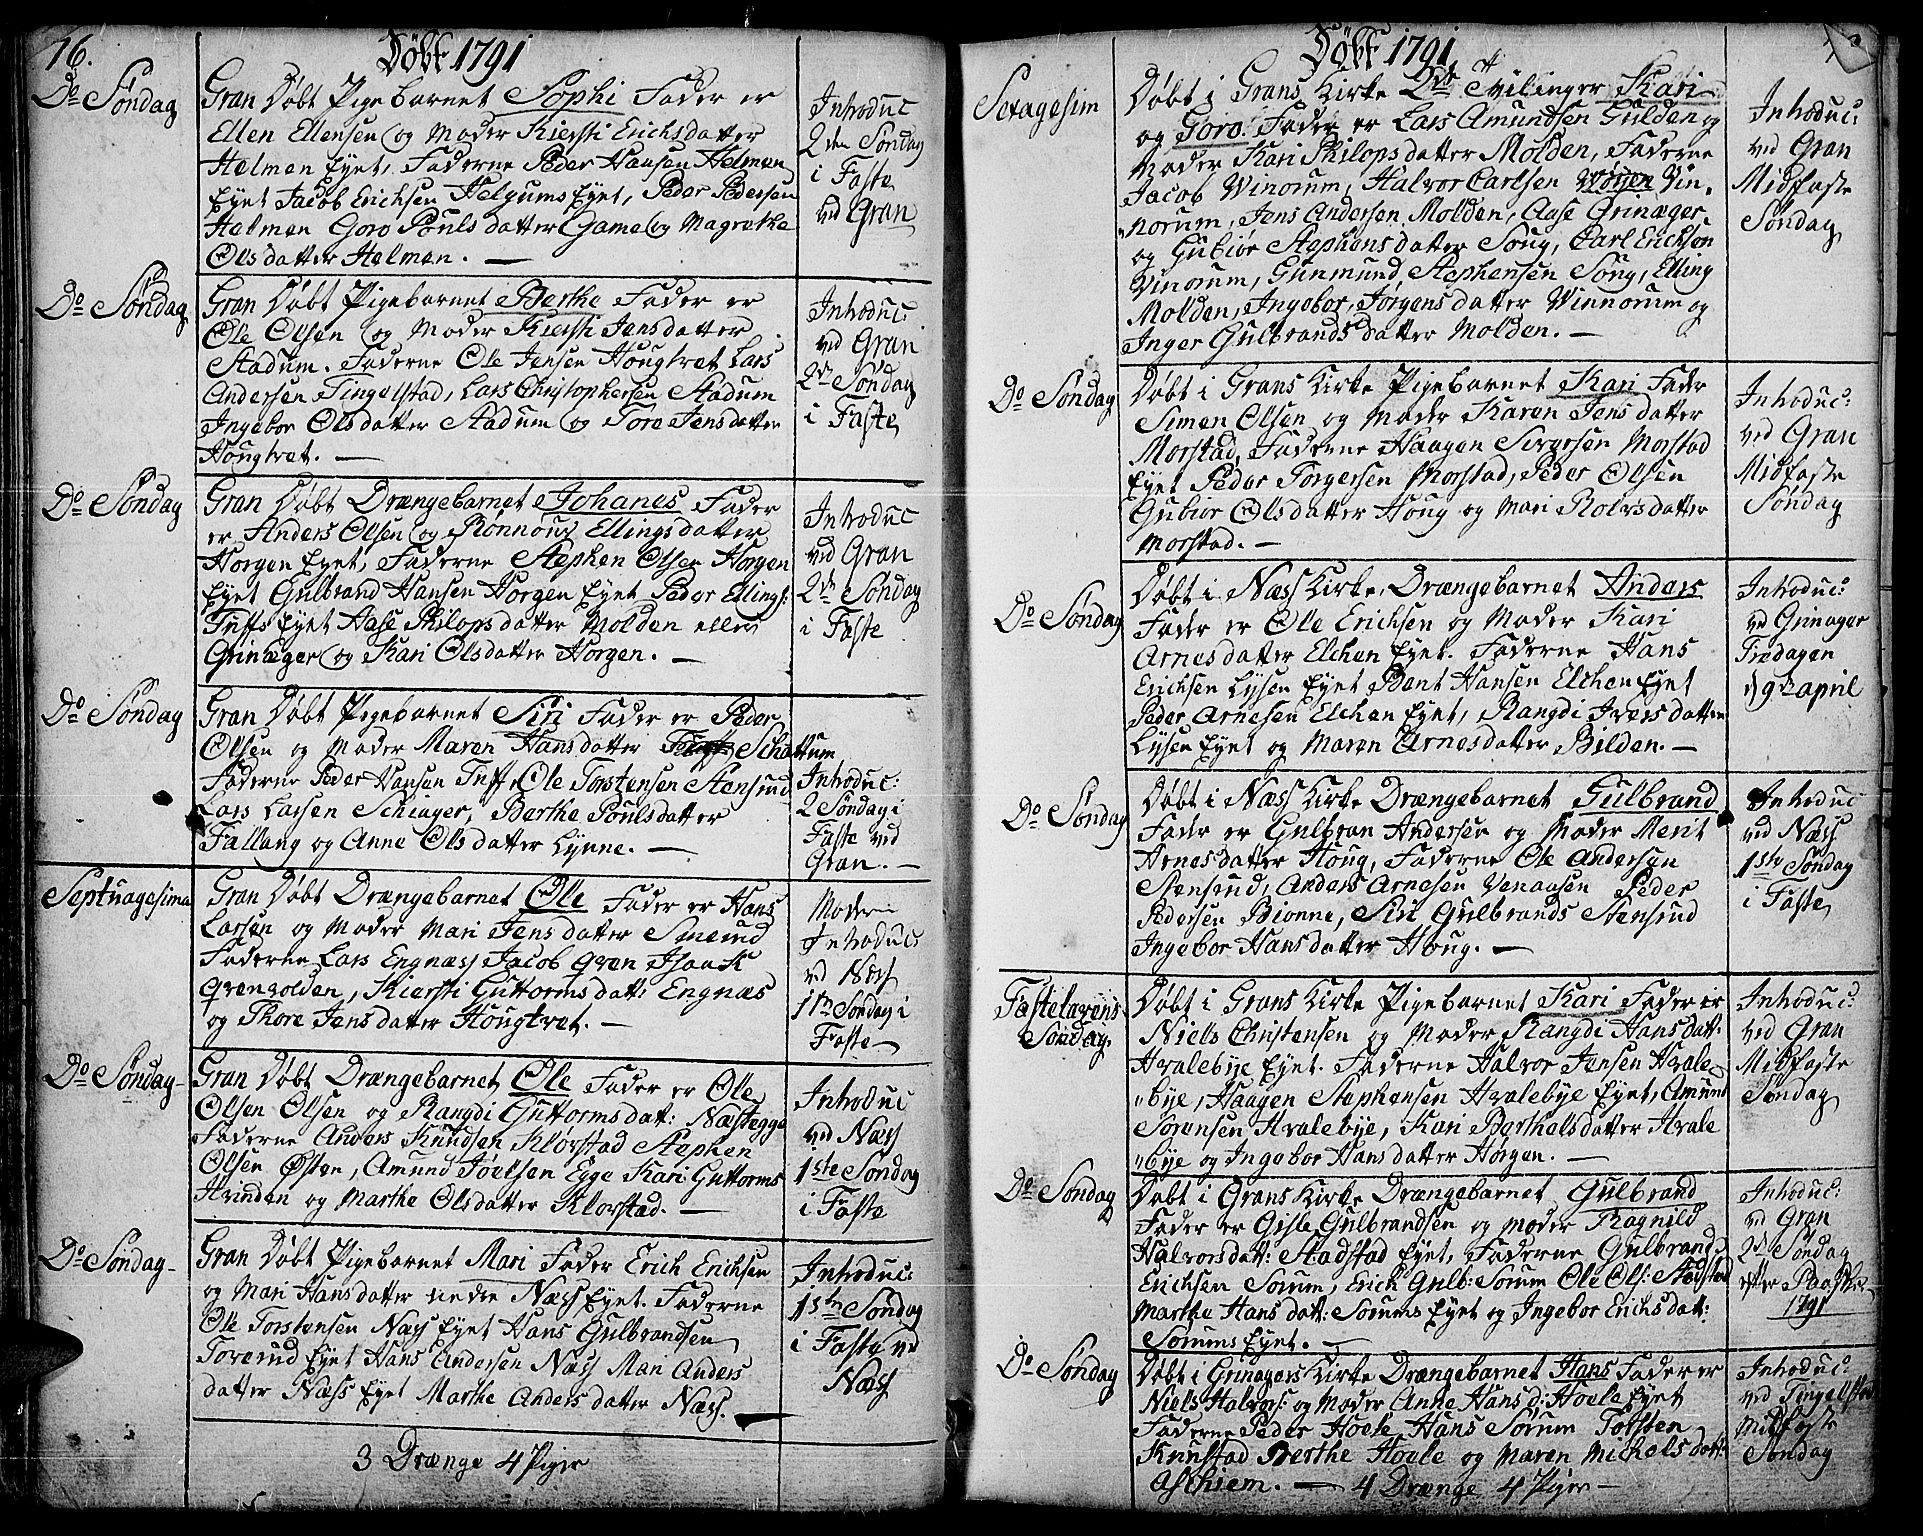 76.
Döbt 1791
Do Söndag
Gran Döbt Pigebarnet Sophi Fader er
Ellen Ellensen og Moder Kiersti Erichsdatter
Helmen Eyet, Fadderne Peder Hansen Helmen
Eyet Jacob Erichsen Helgums Eyet, Peder Pedersen
Helmen Goro Pouls datter Game og Magrethe
Ols datter Helmen. —
Introduc
2den Söndag
i Faste
ved Gran
Do Söndag
Gran Döbt Pigebarnet Berthe Fader er
Ole Olsen og Moder Kiersti Jensdatter
Stadum. Fadderne Ole Jensen Hougtvet Lars
Andersen Tingelstad, Lars Christophersen Stadum
Ingebor Olsdatter Stadum og Tore Jensdatter
Hougtvet. —
Introduc:
ved Gran
2de Söndag
i Faste
Do Söndag
Gran Döbt Drængebarnet Johanes Fader
er Anders Olsen og Ronnoug Ellingsdatter
Horgen Eyet, Fadderne Stephen Olsen Horgen
Eyet Gulbrand Hansen Horgen Eyet Peder Ellings:
Tuffs Eyet Aase Philops datter Molden eller
Grinæger og Kari Olsdatter Horgen. —
Introduc
ved Gran
2de Söndag
i Faste
Do Söndag
Gran Döbt Pigebarnet Siri Fader er Peder
Olsen og Moder Maren Hansdatter Schattum
Fadderne Peder Hansen Tuff Ole Torstensen Stensrud
Lars Larsen Schiager, Berthe Poulsdatter
Fallang og Anne Olsdatter Lynne. —
Introduc:
2 Söndag i
Faste ved
Gran. —
Septuagesima
Gran Döbt Drængebarnet Ole Fader er Hans
Larsen og Moder Mari Jens datter Smerud
Fadderne Lars Engnæss Jacob Gren Isaak
Grengolden, Kiersti Guttorms datt: Engnæs
og Thore Jensdatter Hougtvet. —
Moder
Introduc:
vd Næss
1ste Söndag i
Faste
Do Söndag
Gran Döbt Drængebarnet Ole Fader er Ole
Olsen Olsen og Rangdi Guttormsdat: Næstegge
Fadderne Anders Knudsen Klörstad Stephen
Olsen Östen, Amund Joelsen Egge Kari Guttorms
Hvinden og Marthe Olsdatter Klorstad. —
Introduc
ved Næss
1ste Söndag
i Faste
Do Söndag
Gran Döbt Pigebarnet Mari Fader Erich Erichsen
og Mari Hansdatter nedre Næss Eyet. Fadderne
Ole Torstensen Næss Eyet Hans Gulbrandsen
Toverud Eyet Hans Andersen Næss Mari Anders
datter Næss Eyet Marthe Andersdatter Næss.
Introduc:
1ste Söndag
i Faste vd
Næss
3 Drænge 4 Piger
Döbt 1791
Sexagesim
Döbt i Grans Kirke 2de Tvilinger Kari
og Goro. Fader er Lars Amundsen Gulden og
Moder Kari Philops datter Molden, Fadderne
Jacob Winorum, Halvor Carlsen Vin,
norum, Jens Andersen Molden, Aase Grinæger,
og Gubiör Stephens datter Soug, Carl Erichsen
Vinorum, Gunmund Stephensen Soug, Elling
Molden, Ingebor, Jörgens datter Winnorum og
Inger Gulbrands datter Molden. —
Introduc:
ved Gran
Midfaste
Söndag
Do Söndag
Döbt i Grans Kirke Pigebarnet Kari Fader
Simen Olsen og Moder Karen Jens datter
Morstad, Fadderne Haagen Siversen Morstad
Eyet Peder Torgersen Morstad, Peder Olsen
Gubior Olsdatter Houg og Mari Rolvsdatter
Morstad. —
Introduc:
ved Gran
Midfaste
Söndag
Do Söndag
Döbt i Næss Kirke, Drængebarnet Anders
Fader er Ole Erichsen og Moder Kari
Arnesdatter Elchen Eyet. Fadderne Hans
Erichsen Lysen Eyet Hansen Elchen Eyet
Peder Arnesen Elchen Eyet, Rangdi Ivers datter
Lysen Eyet og Maren Arnesdatter Bilden. —
Introduc:
ved Grinager
Fredagen
d 9de april
Do Söndag
Döbt i Næss Kirke Drængebarnet Gulbrand
Fader er Gulbran Andersen og Moder Merit
Arnesdatter Houg, Fadderne Ole Andersen
Stensrud, Anders Arnesen Venaasen Peder
Pedersen Bionne, Siri Gulbrands Stensrud
Ingebor Hansdatter Houg. —
Introduc
ved Næss
1ste Söndag
i Faste
Fastelavens
Söndag.
Döbt i Grans Kirke Pigebarnet Kari Fader er
Niels Christensen og Moder Rangdi Hansdatt:
Hvalebÿe Eyet. Fadderne Halvor Jensen Hvale
"bÿe, Haagen Stephensen Hvalebÿe Eyet, Amund
Sörensen Hvalebÿe, Kari Barthelsdatter Hvale
"bÿe og Ingebor Hansdatter Horgen. —
Introduc:
ved Gran
Midfaste
Söndag
Do Söndag
Döbt i Grans Kirke Drængebarnet Gulbrand
Fader er Gisle Gulbrandsen og Moder Ragnild
Halvorsdat: Stadstad Eyet, Fadderne Gulbrand
Erichsen Sorum, Erick Gulb: Sorum Ole Ols: Stadstad
Marthe Hans datt: Sorums Eyet og Ingebor Erichsdatt:
Sorums Eyet. —
Introduc:
vd Gran
2de Söndag
efter Paaske
1791
Do Söndag
Döbt i Grinagers Kirke Drængebarnet Hans Fader er
Niels Halvors: og Moder Anne Hans d: Hoele Eyet
Fadderne Peder Hoele Hans Sörum Torsten
Knustad Berthe Hoele og Maren Michelsdatt:
Aschiem. — 4 Drænge 4 Piger —
Introduc:
ved Tingelstad
Midfaste
Söndag